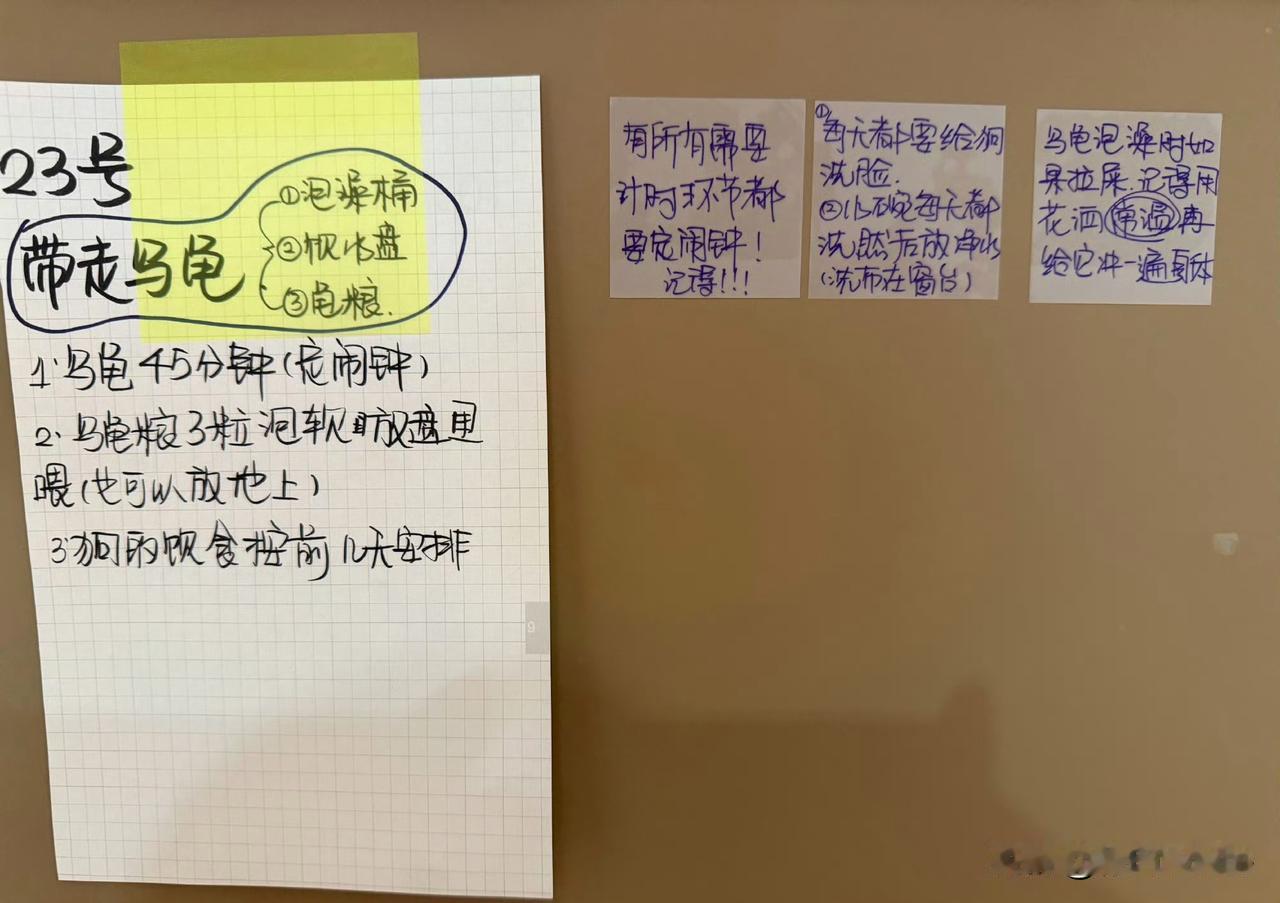 23号
带走乌龟
①泡澡桶
②饮水盘
③龟粮.
1.乌龟45分钟(定闹钟)
2.乌龟粮3粒泡软放盘里
喂(也可以放地上)
3.狗的饮食按前几天安排
9
有所有需要
计时环节都
要定闹钟!
记得!!!
①每天都要给狗
洗脸.
②水碗每天都
洗然后放净水
(洗布在窗台)
乌龟泡澡时如
果拉屎.记得用
花洒(常温)再
给它冲一遍身体